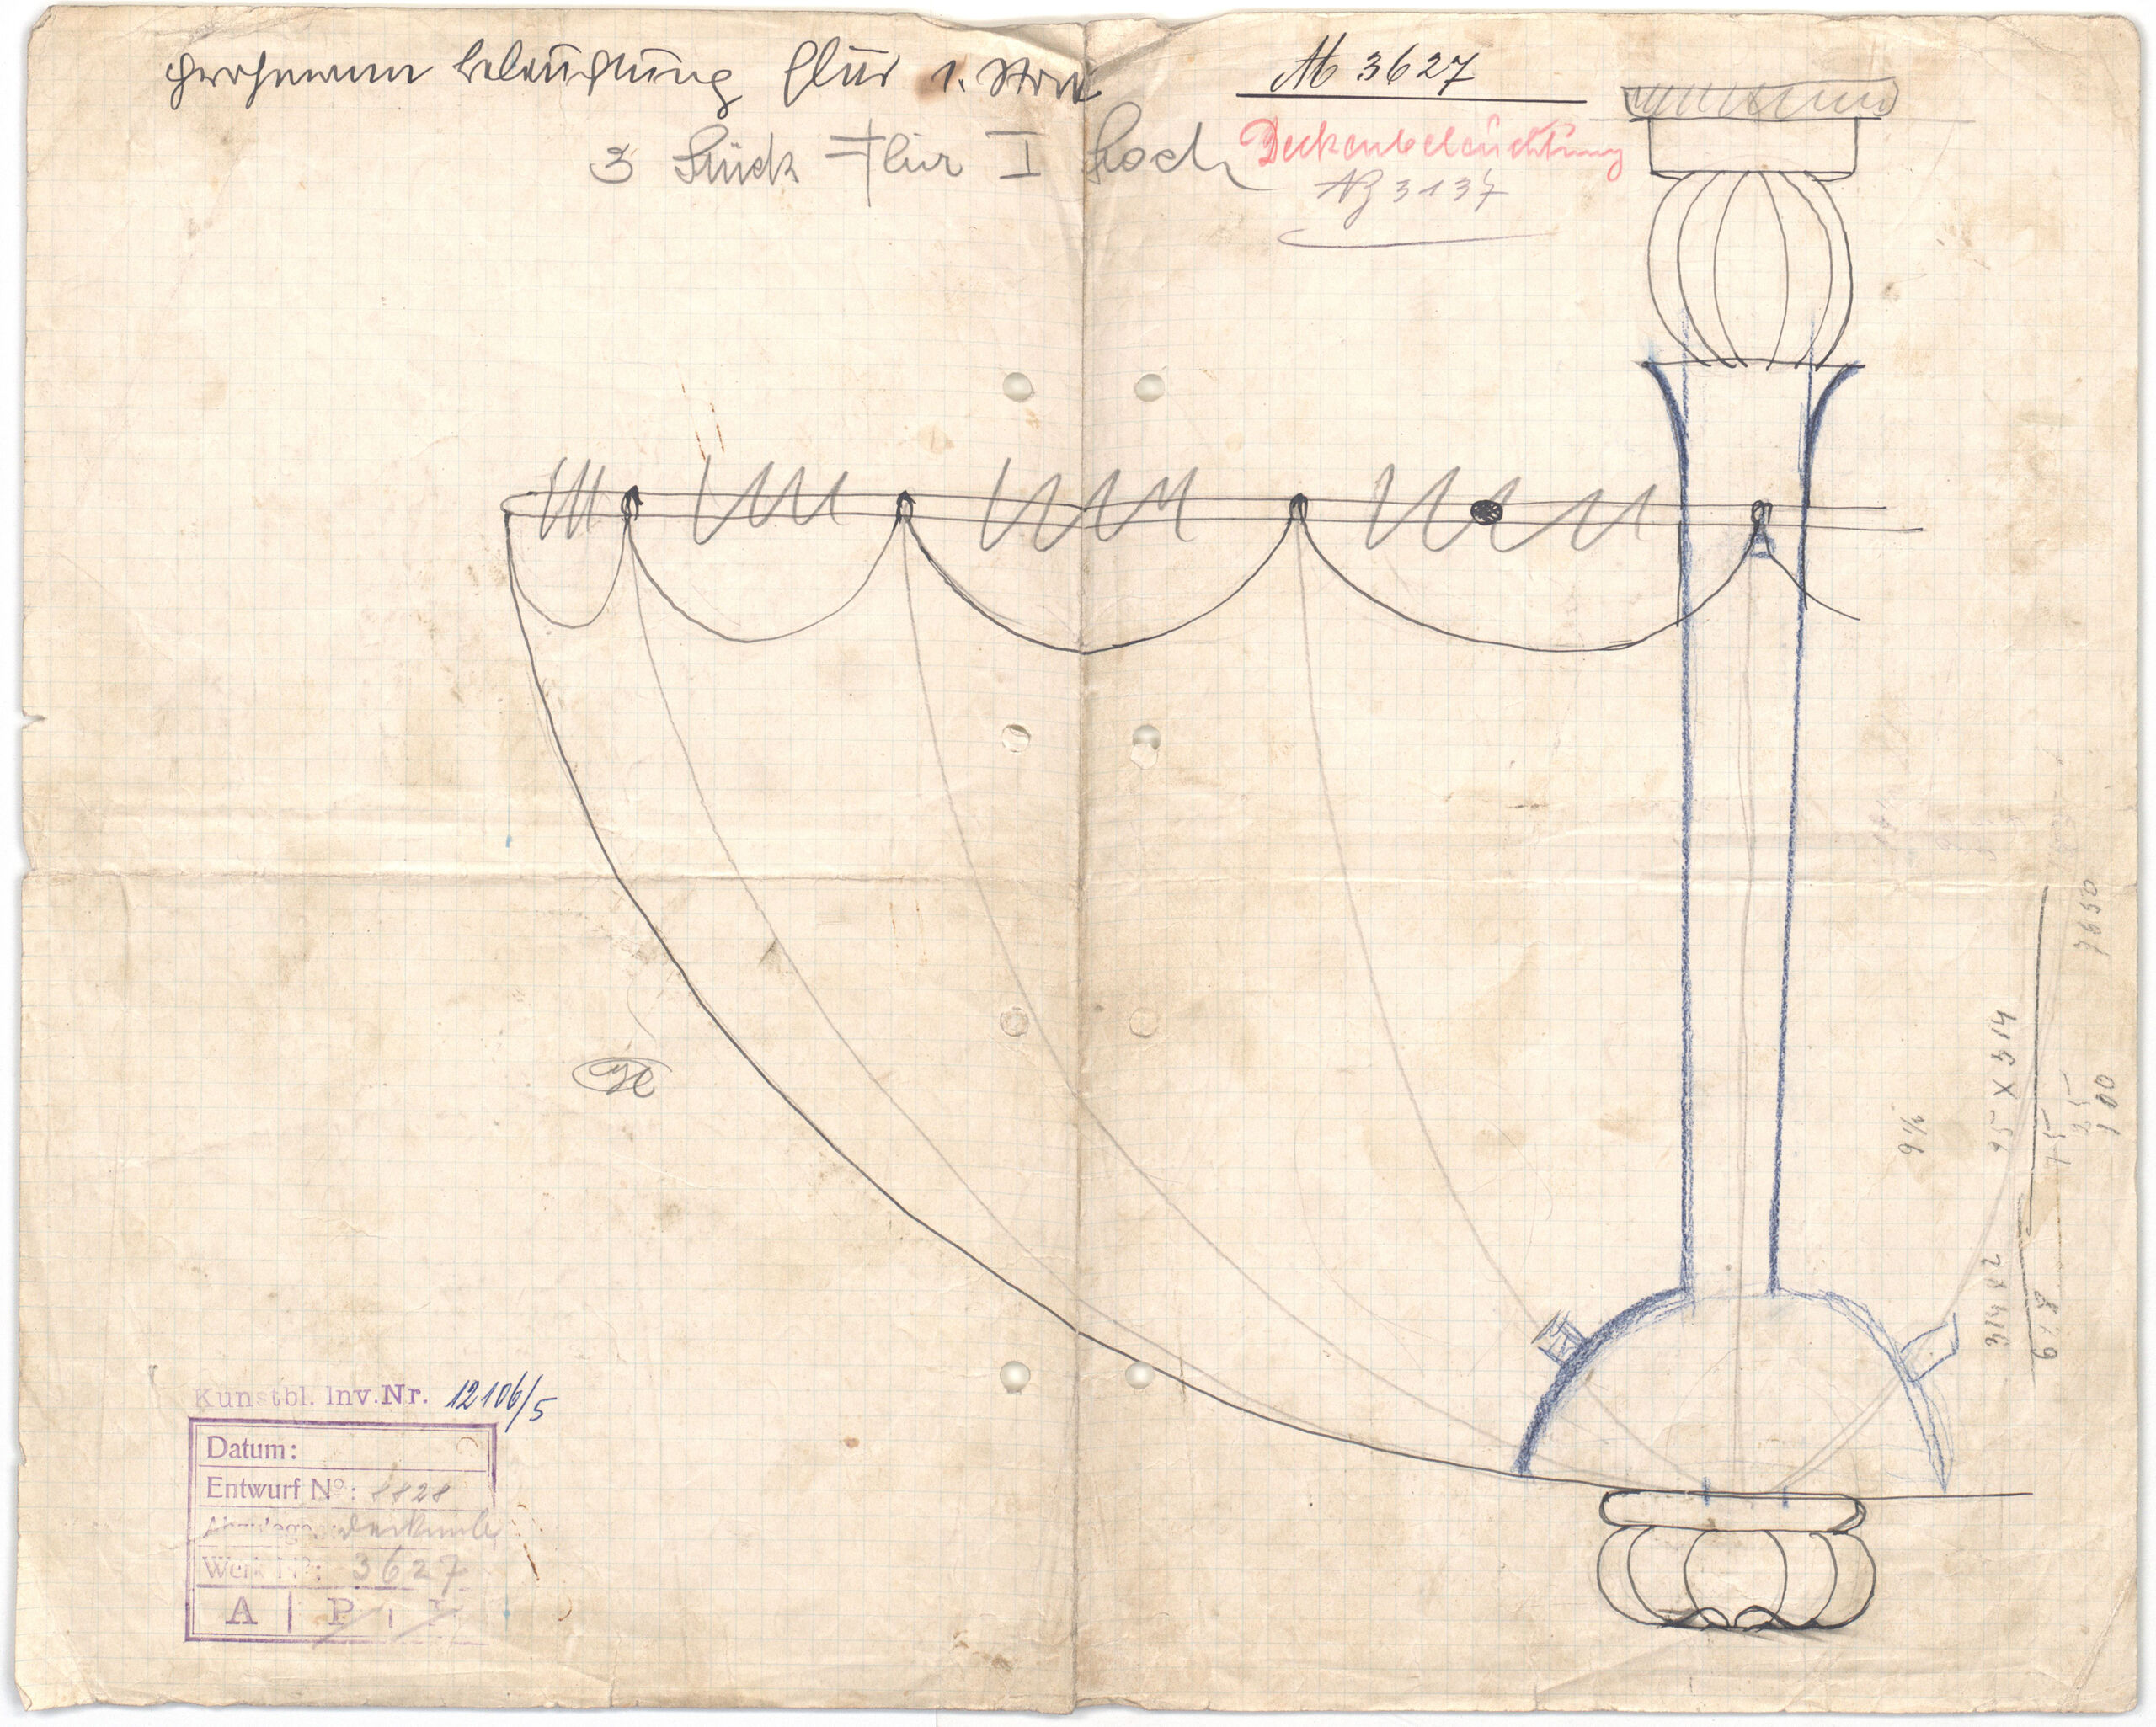 Grohmann beleuchtung flur 1. Stock
M 3627
3 Stück Flur I Stock
Deckenbeleuchtung
Nz 3137
7650
9½
25 X 314
15
25
100
314 x 2
618
Kunstbl. Inv.Nr. 12106/5
Datum:
Entwurf No: 8828
Werk No: 3627
A P